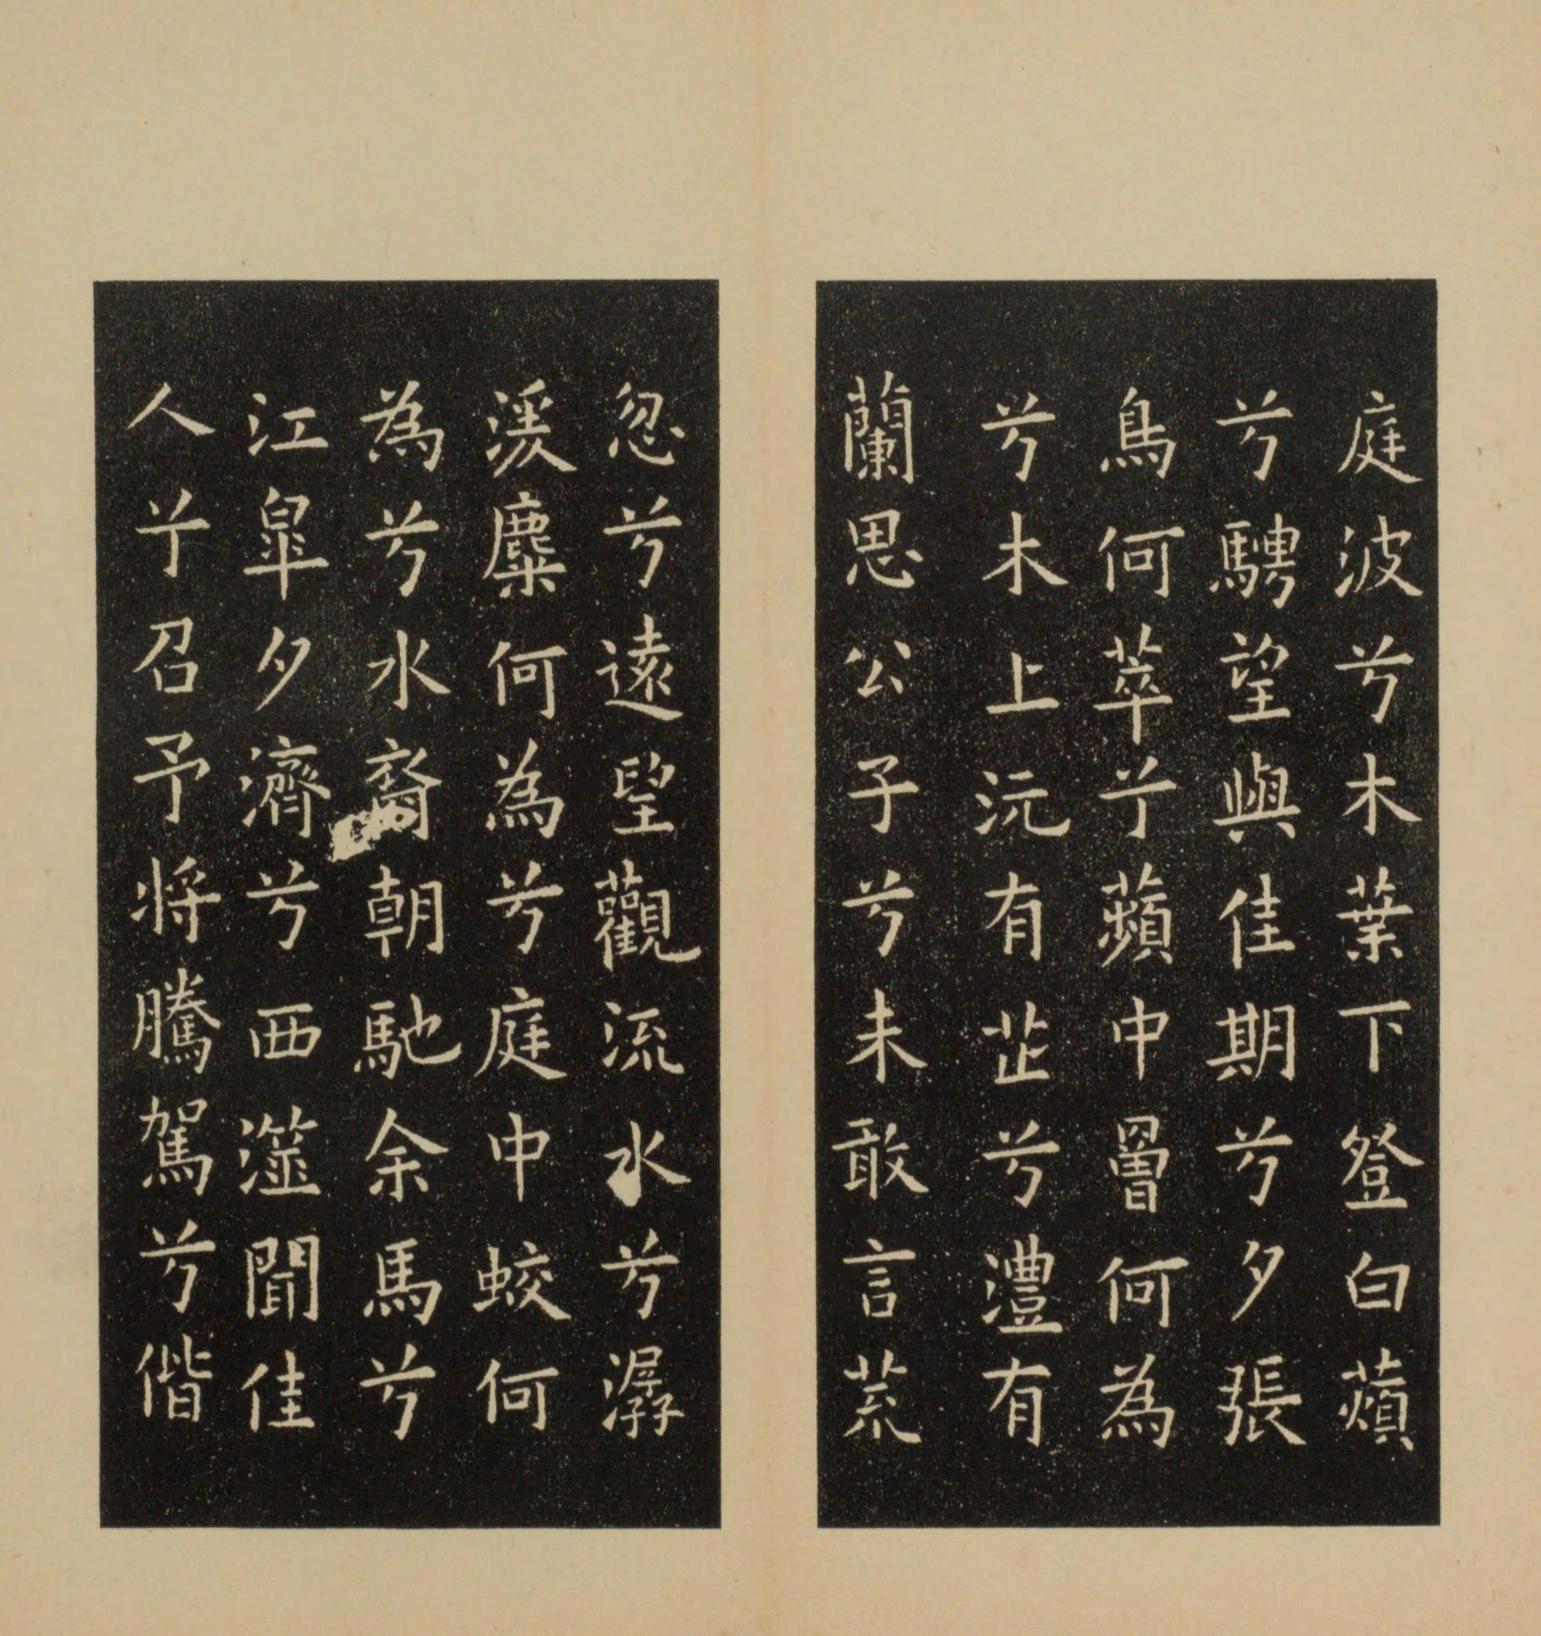 庭波兮木葉下登白薠
兮騁望與佳期兮夕張
鳥何萃兮蘋中罾何為
兮木上沅有芷兮澧有
蘭思公子兮未敢言荒
忽兮遠望觀流水兮潺
湲麋何為兮庭中蛟何
為兮水裔朝馳余馬兮
江皐夕濟兮西澨聞佳
人兮召予将騰駕兮偕